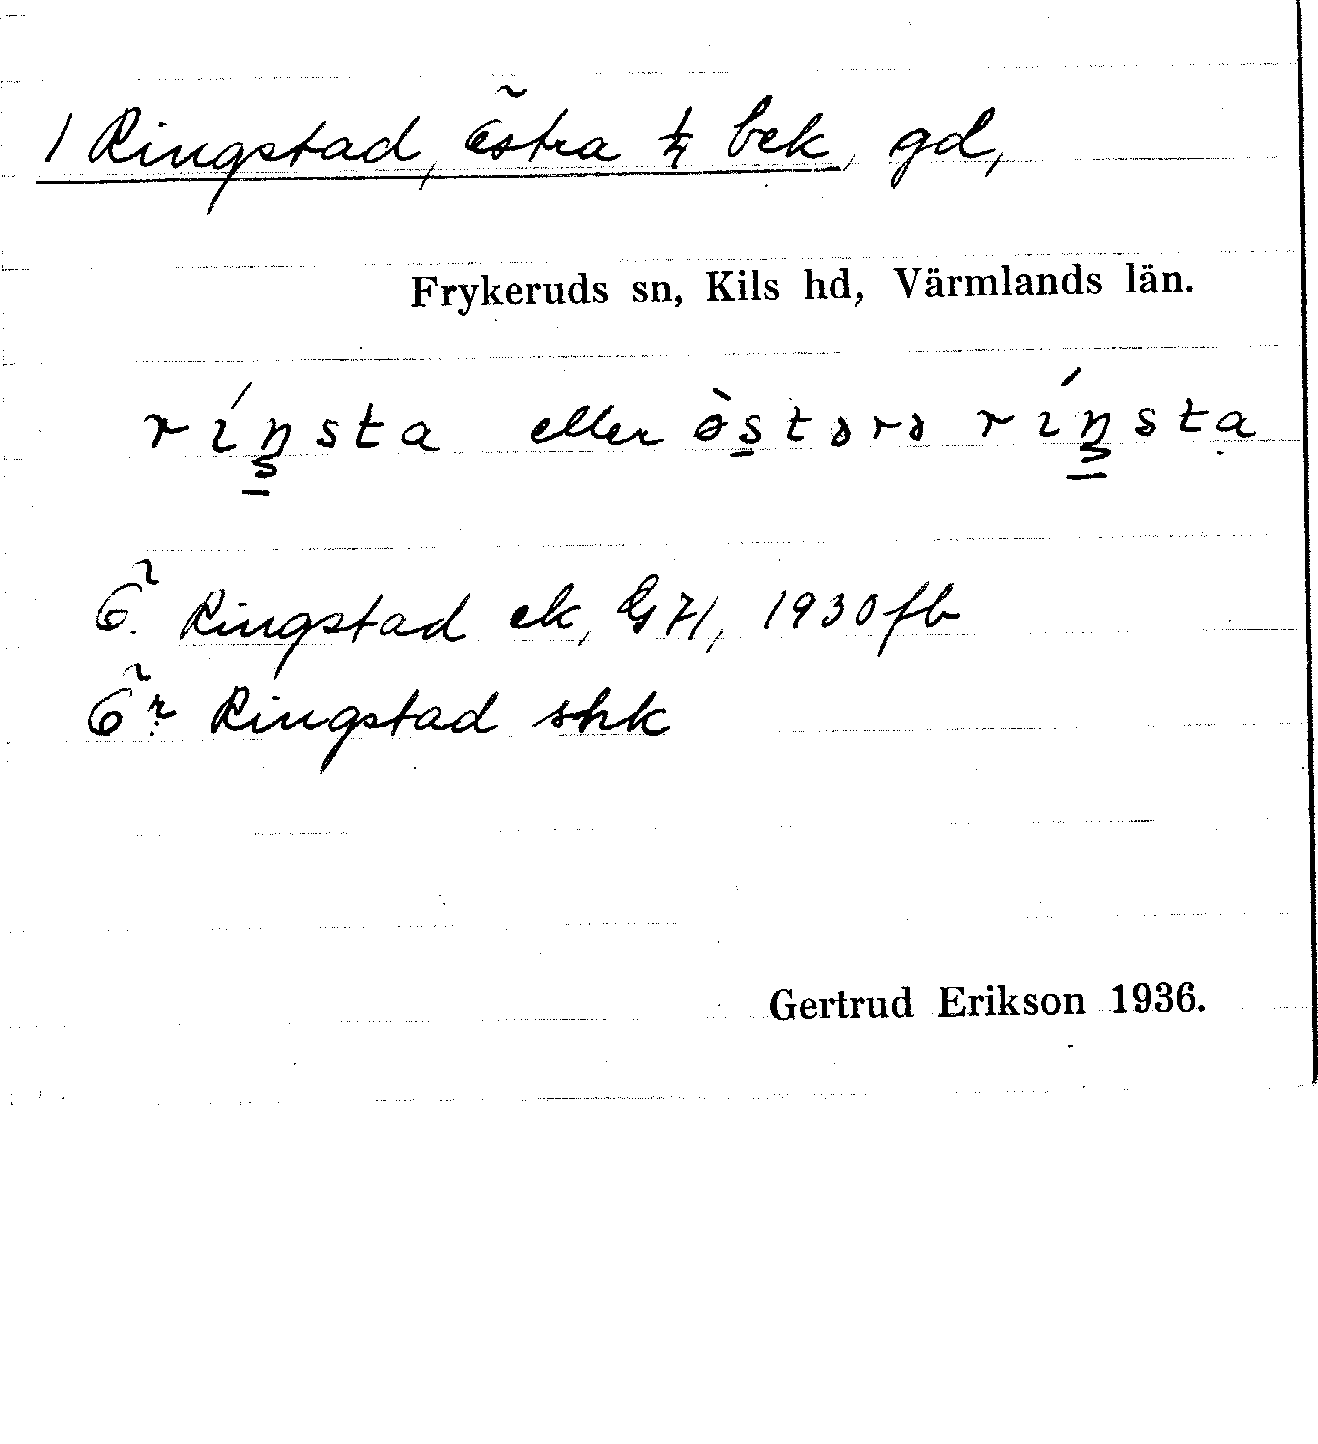 1 Ringstad, Östra ½ bek, gd,
Frykeruds sn, Kils hd, Värmlands län.
eller
Ö. Ringstad ek, G 71, 1930 fb
Ö:r Ringstad shk
Gertrud Erikson 1936.